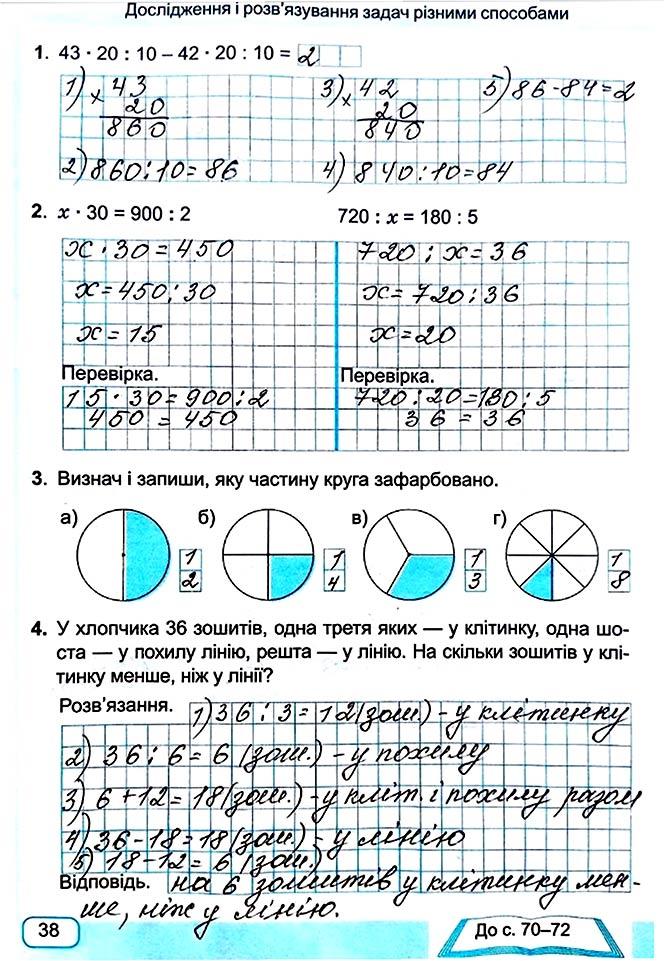 Дослідження і розв'язування задач різними способами
1. 43 · 20 : 10 – 42 · 20 : 10 = 2
1) × 43 3) × 42 5) 86 - 84 = 2
20 20
860 840
2) 860 : 10 = 86 4) 840 : 10 = 84
2. x · 30 = 900 : 2 720 : x = 180 : 5
x · 30 = 450 720 : x = 36
x = 450 : 30 x = 720 : 36
x = 15 x = 20
Перевірка. Перевірка.
15 · 30 = 900 : 2 720 : 20 = 180 : 5
450 = 450 36 = 36
3. Визнач і запиши, яку частину круга зафарбовано.
а) 1 б) 1 в) 1 г) 1
2 4 3 8
4. У хлопчика 36 зошитів, одна третя яких — у клітинку, одна шо-
ста — у похилу лінію, решта — у лінію. На скільки зошитів у клі-
тинку менше, ніж у лінії?
Розв'язання. 1) 36 : 3 = 12 (зош.) - у клітинку
2) 36 : 6 = 6 (зош.) - у похилу
3) 6 + 12 = 18 (зош.) - у кліт. і похилу разом
4) 36 - 18 = 18 (зош.) - у лінію
5) 18 - 12 = 6 (зош.)
Відповідь. на 6 зошитів у клітинку мен-
ше, ніж у лінію.
38 До с. 70–72